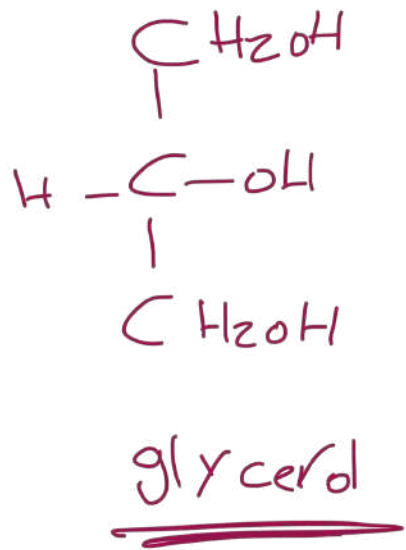 CH2OH
|
H-C-OH
|
CH2OH
glycerol